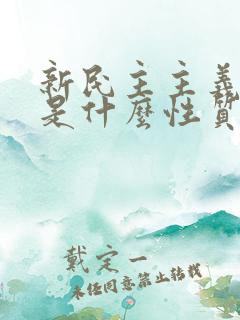 新民主主義
是什麼性質
戴定一
未经同意禁止转载